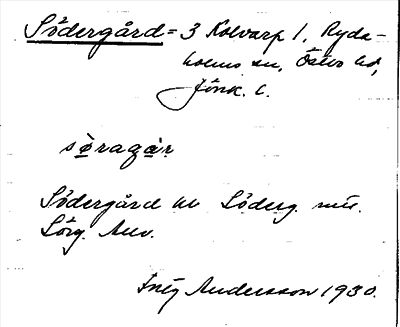 Södergård = 3 Kolvarp 1, Ryda-
holms sn, Östbo hd,
Jönk. l.
søragar
Södergård kv Söderg. mtl.
Sörg. Anv.
Frej Andersson 1930.